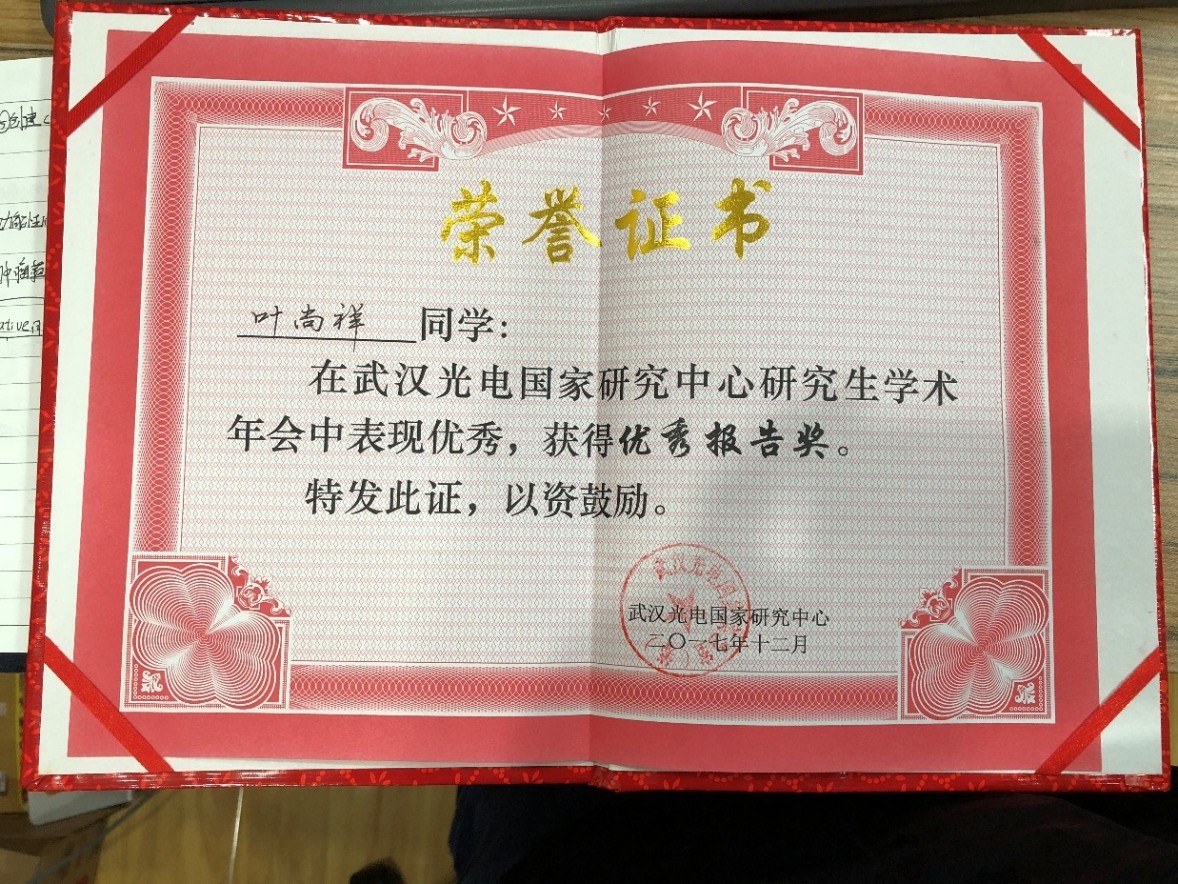 荣誉证书
叶尚祥 同学：
在武汉光电国家研究中心研究生学术
年会中表现优秀，获得优秀报告奖。
特发此证，以资鼓励。
武汉光电国家研究中心
二〇一七年十二月